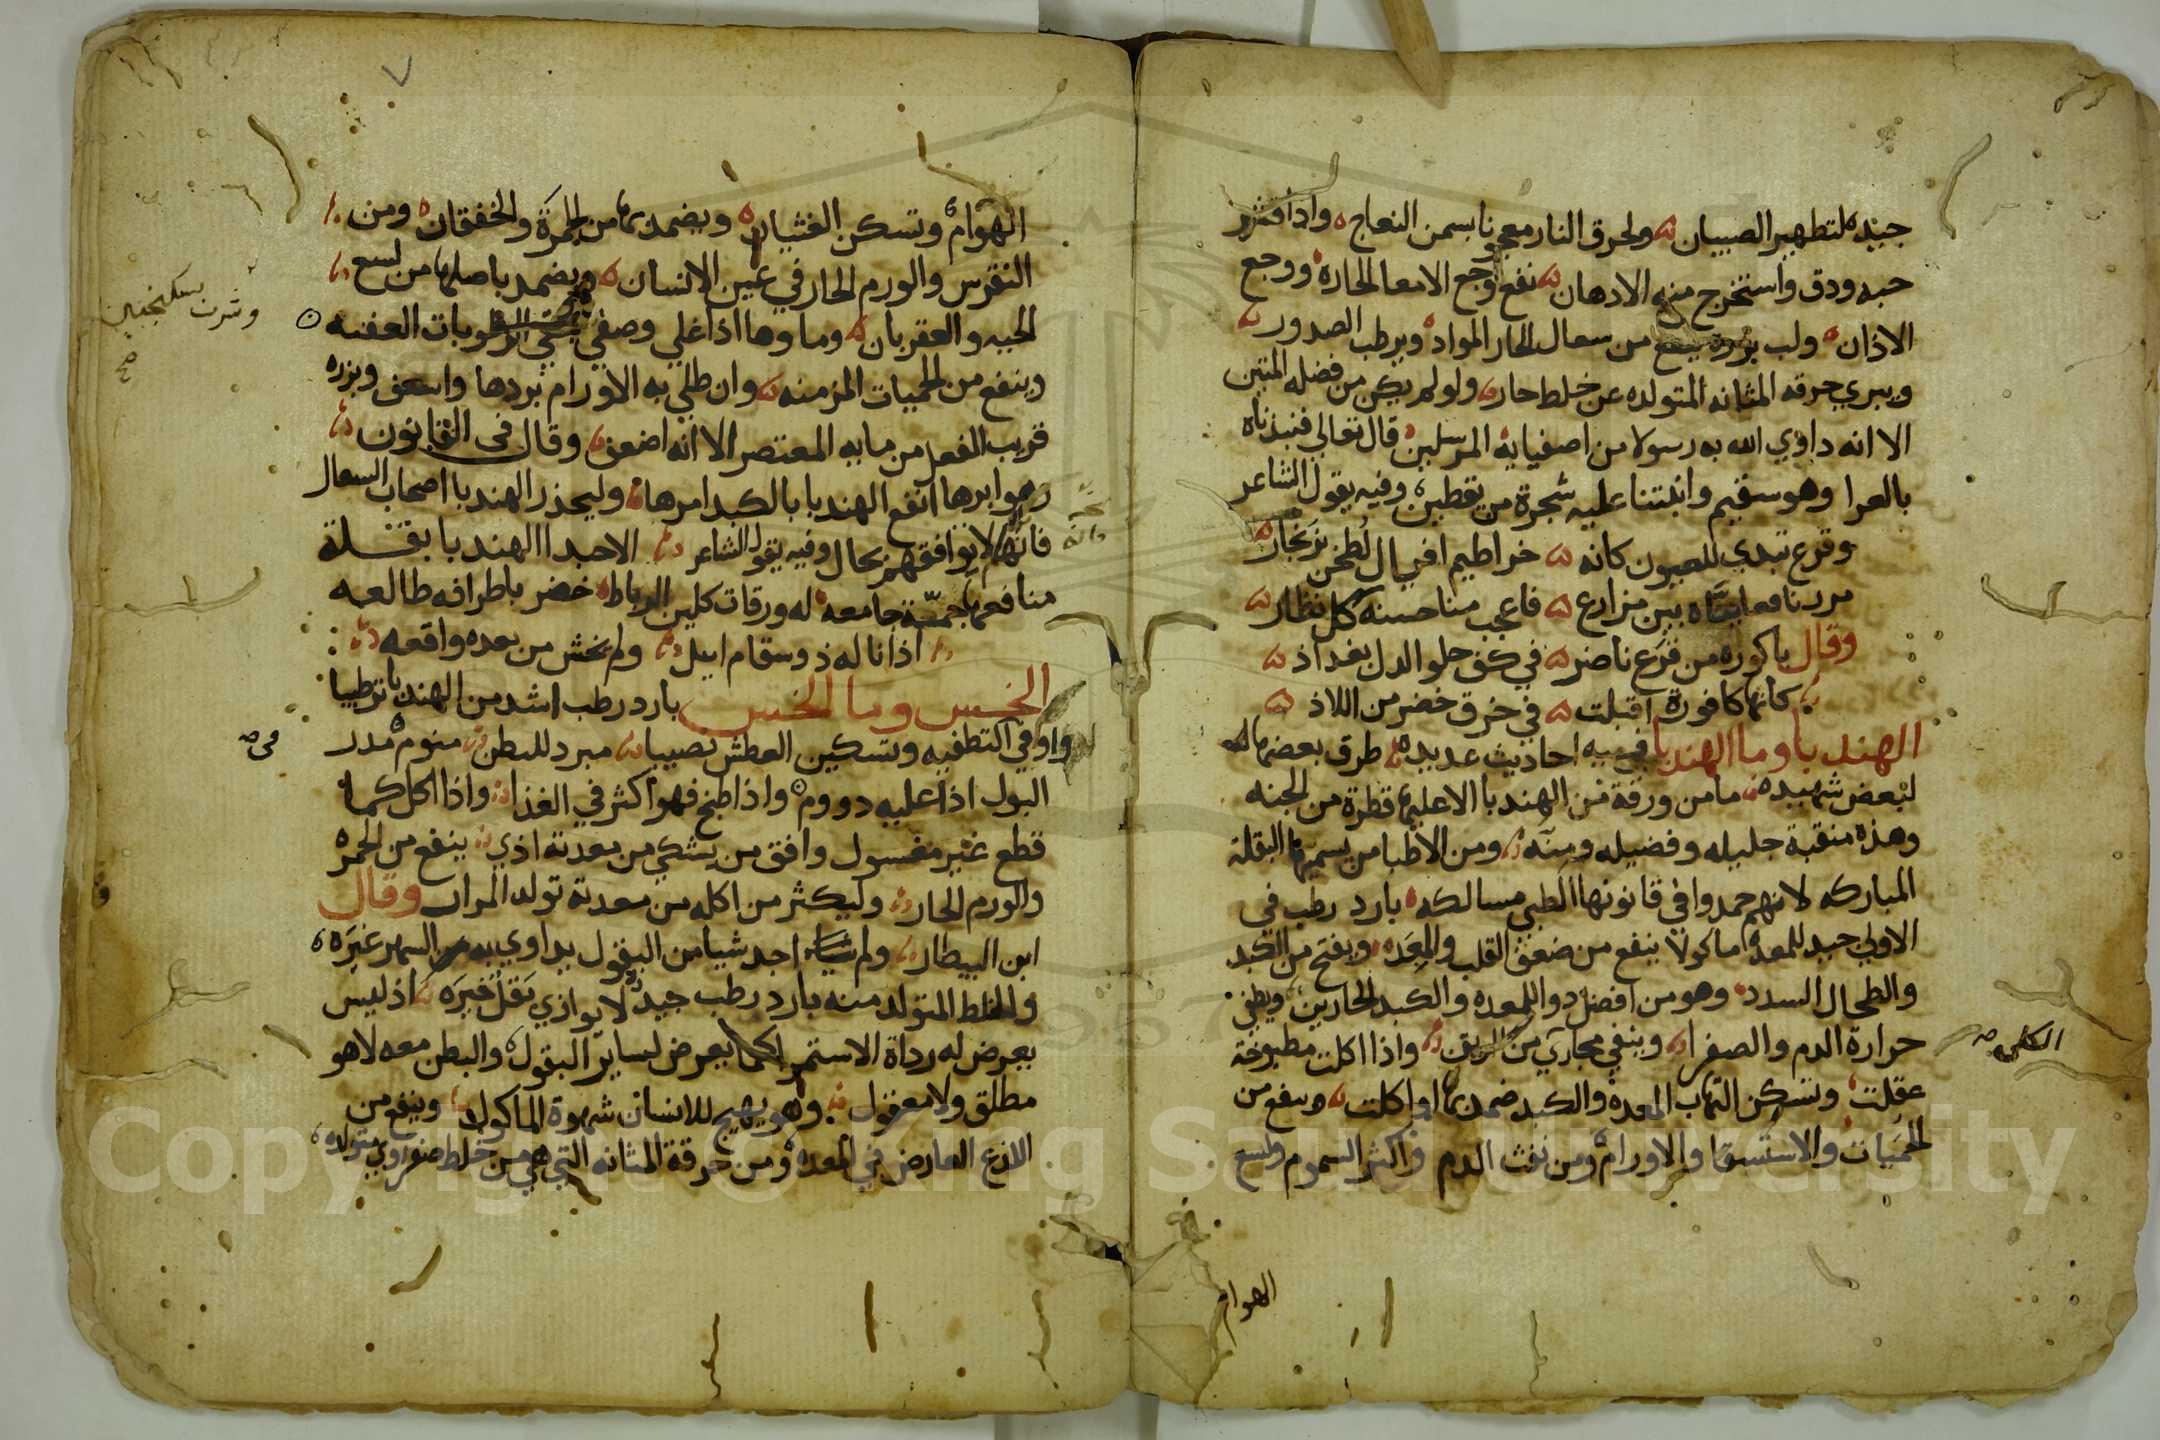 جيده لتطهير الصبيان ولحرق النار معجونا بسمن النعاج واذا قشر
حبه ودق واستخرج منه الادهان نفع وجع الامعا الحاره ووجع
الاذان ولب بزره ينفع من سعال الحار المواد ويرطب الصدور
ويبري حرقه المثانه المتولده عن خلط حار ولو لم يكن من فضله المتين
الا انه داوي الله به رسولا من اصفيايه المرسلين قال تعالي فنبذناه
بالعرا وهو سقيم وانبتنا عليه شجرة من يقطين وفيه يقول الشاعر
وقرع تبدي للعيون كانه خراطيم افيال لطخن بزنجار
مررنا فعايناه بين مزارع فاعجب منا حسنه كل نظار
وقال باكوره من قرع ناضر في كف حلو الدل بغداذ
كانها كافورة اقبلت في خرق خضر من اللاذ
الهندبا وما الهندبا فيه احاديث عديده طرق بعضها
لبعض شهيده ما من ورقة من الهندبا الا عليها قطرة من الجنه
وهذه منقبة جليله وفضيله ومنه ومن الاطبا من يسميها البقلة
المباركه لانهم حمدوا في قانونها الطبي مسالكه بارد رطب في
الاولي جيد للمعده ماكولا ينفع من ضعف القلب والمعده ويفتح من الكبد
والطحال السدد وهو من افضل دوا للمعده والكبد الحارين ويطفي
حرارة الدم والصفرا وينقي مجاري من واذا اكلت مطبوخة
الكلي صح
عقلت وتسكن التهاب المعده والكبد ضمدبها او اكلت وينفع من
الحميات والاستسقا والاورام ومن نفث الدم واكثر السموم ولسع
الهوام
الهوام وتسكن الغثيان ويضمد بها من الحمرة والخفقان ومن
النقرس والورم الحار في عين الانسان ويضمد باصلها من لسع
الحيه والعقربان وماوها اذا غلي وصفي الرطوبات العفنه
وشرب بسكنجبين
صح
وينفع من الحميات المزمنه وان طلي به الاورام بردها وبزره
قريب الفعل من مايه المعتصر الا انه اضعف وقال في القانون
وهو ابرها انفع الهندبا بالكبد امرها وليحذر الهندبا اصحاب السعال
فانها لا يوافقهم بحال وفيه يقول الشاعر الاحبدا الهندبا بقلة
منافعها جمة جامعه له ورقات كلين الرباط خضر باطرافه طالعه
اذا ناله ذو سقام ابل ولم يخش من بعده واقعه
الخس وما الخس بارد رطب اشد من الهندبا ترطيبا
واوفي التطفيه وتسكين العطش نصيبا مبرد للبطن منوم مدر
في صح
البول اذا عليه دووم واذا طبخ فهو اكثر في الغذا واذا اكل كما
قطع غير مغسول وافق من يشكي من معدته اذي ينفع من الحمره
والورم الحار وليكثر من اكله من معدته تولد المرار وقال
ابن البيطار ولم اجد شيا من البقول يداوي به السهر غيره
والخلط المتولد منه بارد رطب جيد لا يوازي بقل خيره اذ ليس
يعرض له رداة الاستمرا كما يعرض لساير البقول والبطن معه لا هو
مطلق ولا معقول وهو يهيج للانسان شهوة الماكول وينفع من
اللذع العارض في المعده ومن حرقة المثانه التي هي من خلط صفراوي متولده